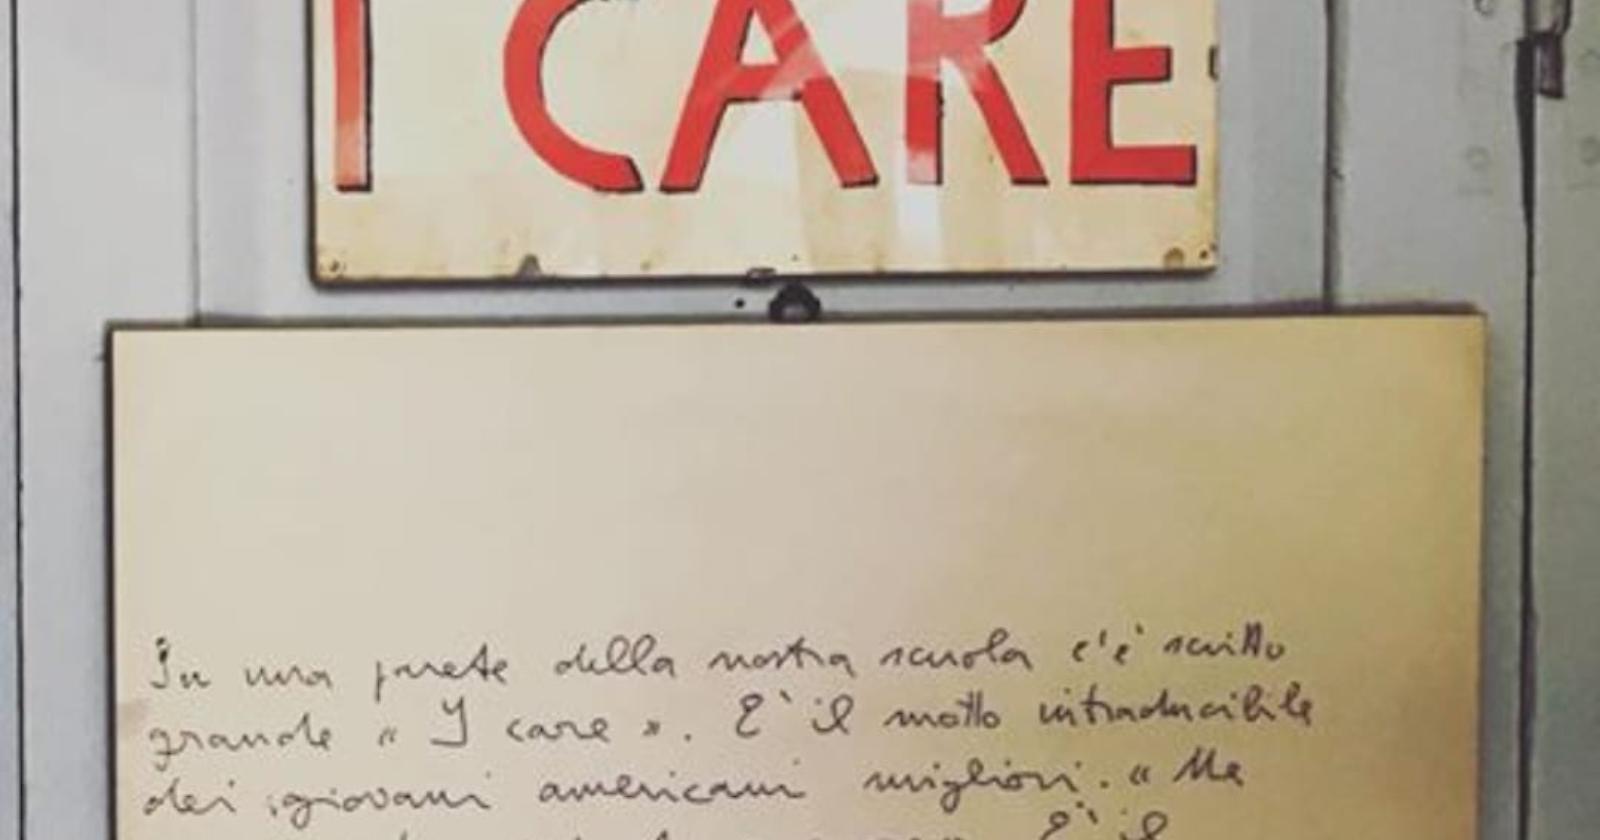 I CARE
In una parete della nostra scuola c'è scritto
grande « I care ». E' il motto intraducibile
dei giovani americani migliori. « Me
E' il